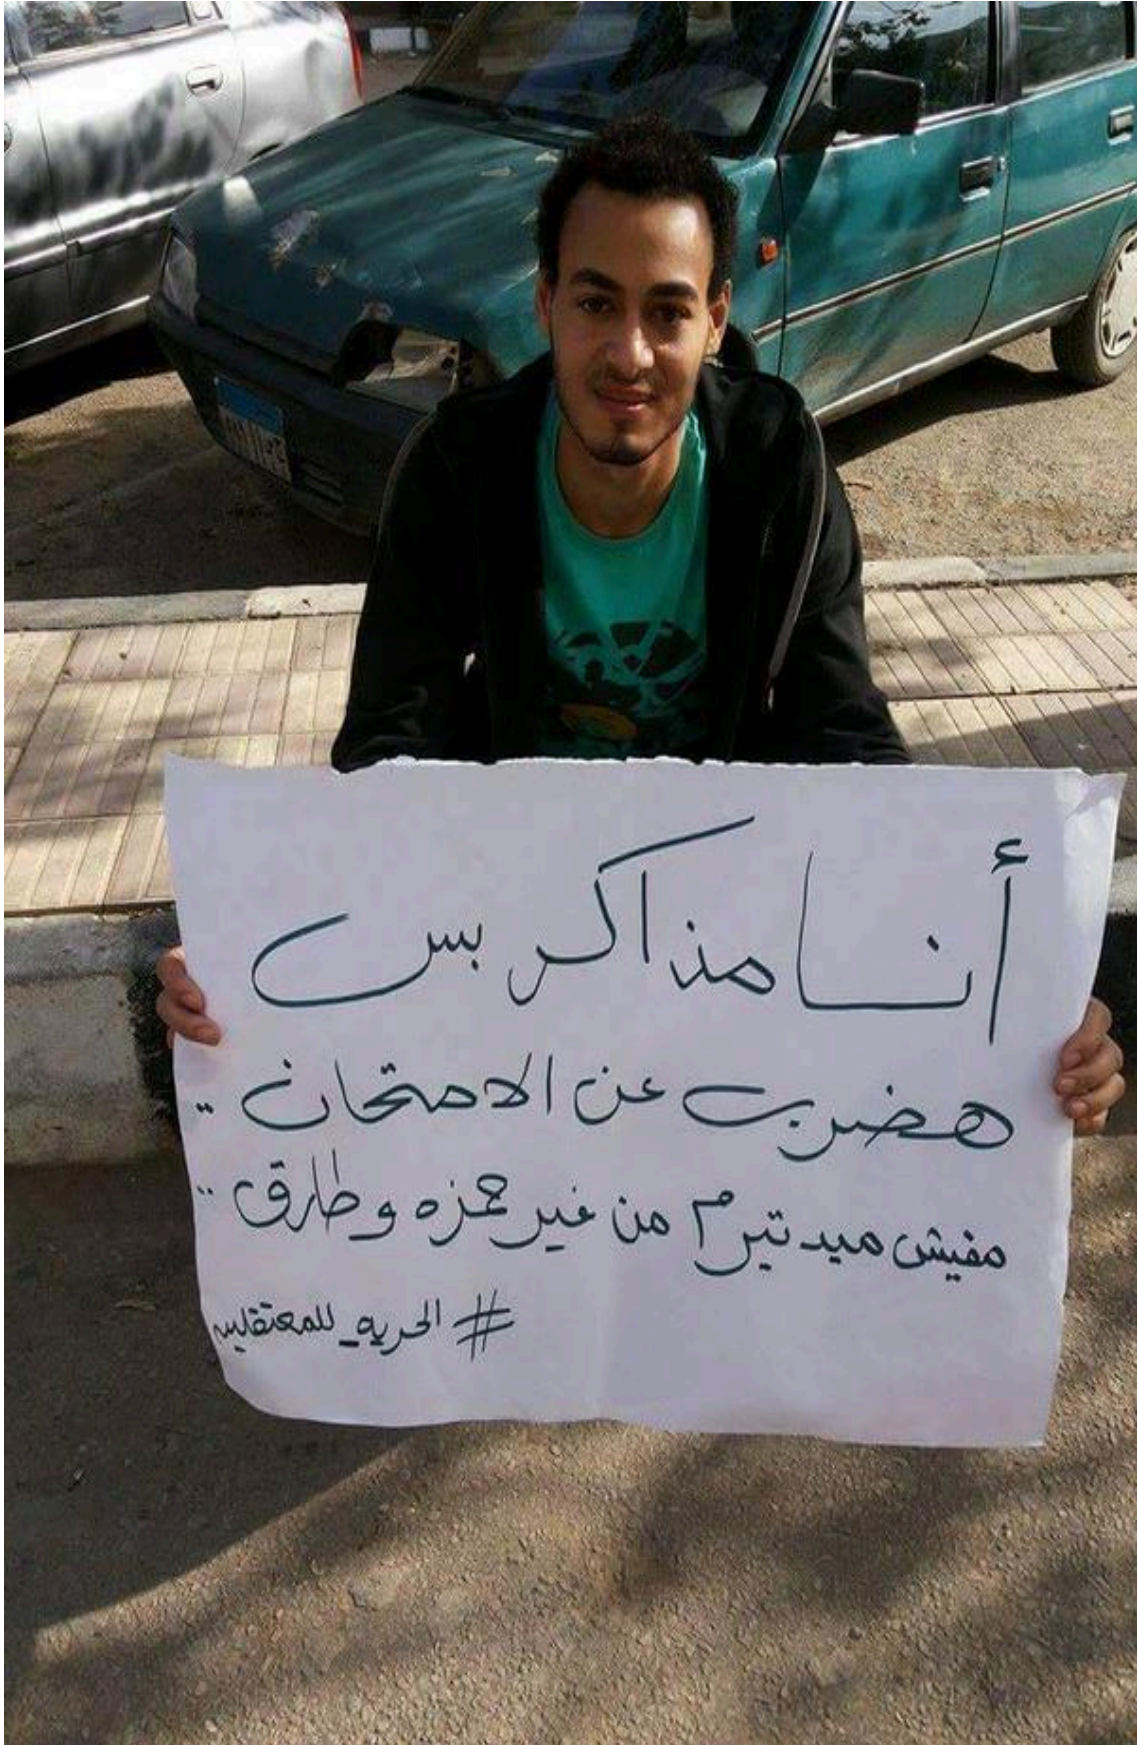 أنا مذاكر بس
هضرب عن الامتحان ..
مفيش ميد تيرم من غير حمزه وطارق ..
# الحريه_للمعتقلين